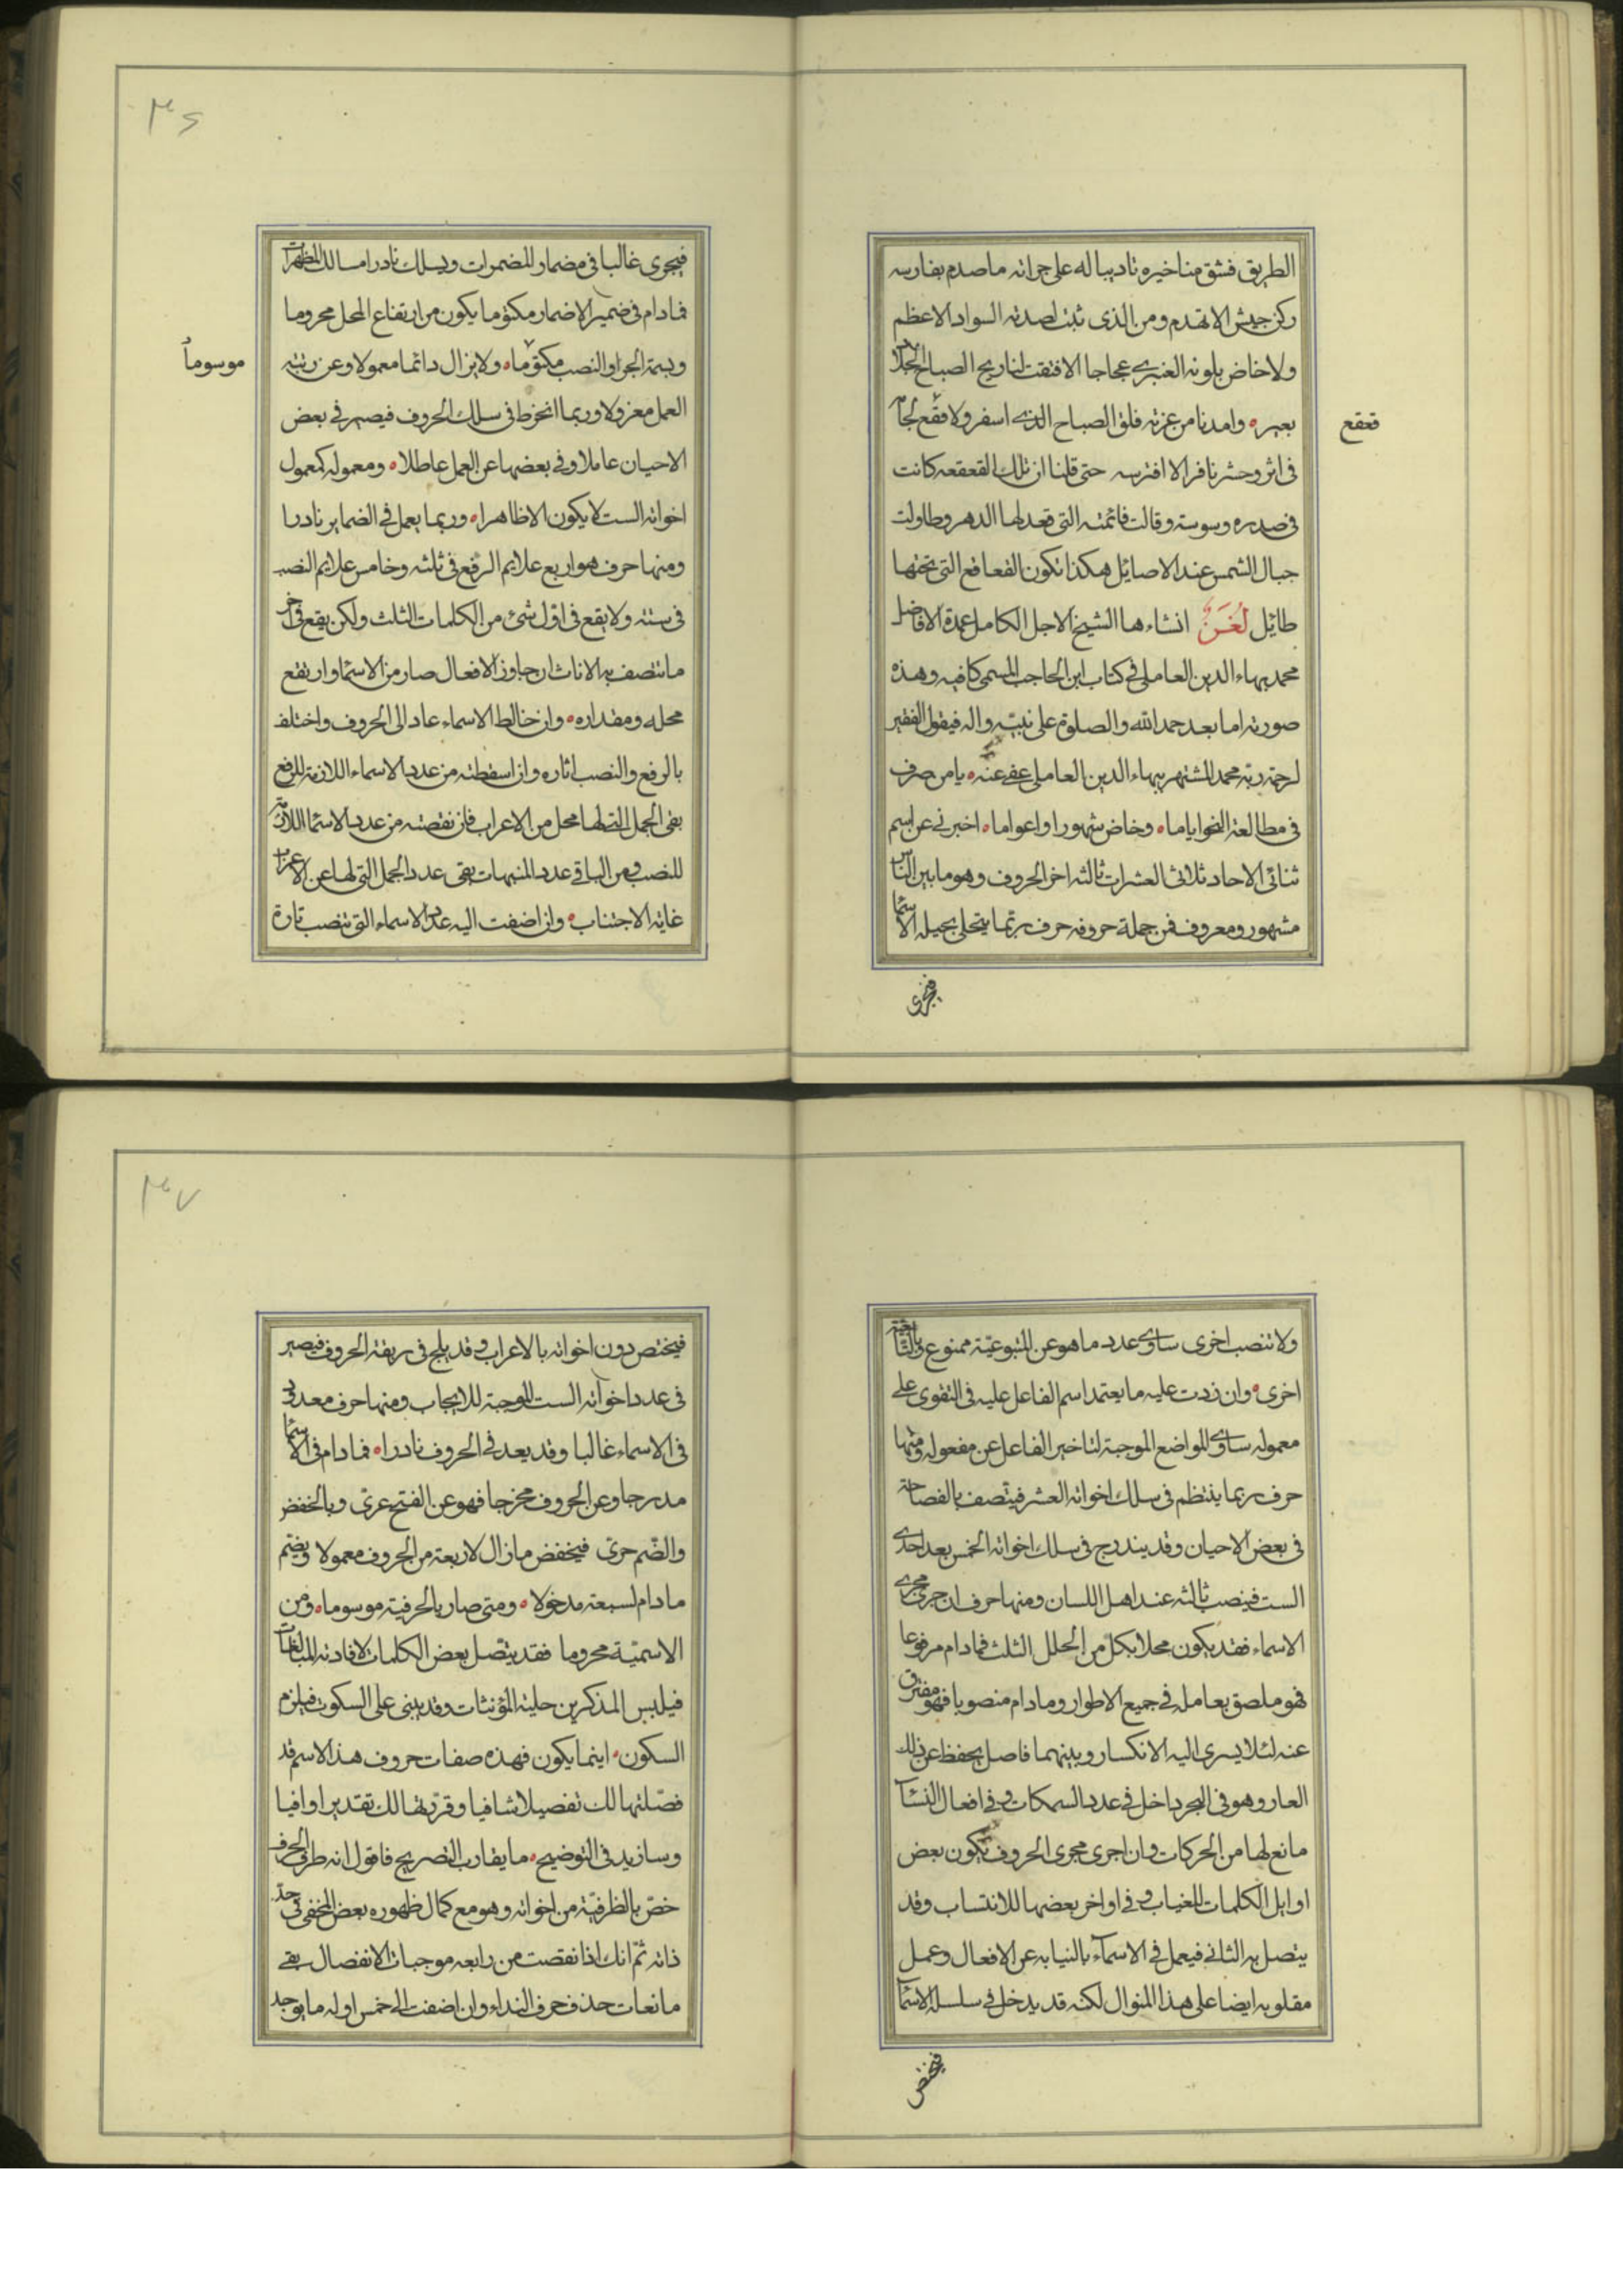 الطريق فشق مناخيره تاديبا له على جراته ما صدم بفارسه
ركن جيش الا تهدم ومن الذى ثبت لصدته السواد الاعظم
ولا خاض بلونه العنبرى عجاجا الا فتقت لنا ريح الصبا الجلاد
بعبير ه وامدنا من غرته فلق الصباح الذى اسفر ولا فقع لجام
قعقع
فى اثر وحش نافر الا افترسه حتى قلنا ان تلك القعقعه كانت
فى صدره وسوسته وقالت قائمته التى قعد لها الدهر وطاولت
جبال الشمس عند الاصايل هكذا تكون القعاقع التى تحتها
طائل لغز انشاءها الشيخ الاجل الكامل عمدة الافاضل
محمد بهاء الدين العاملى فى كتاب ابن الحاجب المسمى كافيه وهذه
صورته اما بعد حمد الله والصلوة على نبيه واله فيقول الفقير
لرحمة ربه محمد المشتهر ببهاء الدين العاملى عفى عنه ه يا من صرف
فى مطالعة النحو اياما ه وخاض شهورا واعواما ه اخبرنى عن اسم
ثنائى الاحاد ثلاثى العشرات ثالثه اخر الحروف وهو ما بين الناس
مشهور ومعروف فمن جملة حروفه حرف ربما يتحلى بحيلة الاسما
فيجرى
۳۶
فيجرى غالبا فى مضمار المضمرات ويسلك نادرا مسالك المظهرات
فما دام فى ضمير الاضمار مكتوما يكون من ارتفاع المحل محروما
وبسمة الجر او النصب مكتوما ه ولا يزال دائما معمولا وعن رتبة
موسوماً
العمل معزولا وربما انخرط فى سلك الحروف فيصير فى بعض
الاحيان عاملا وفى بعضها عن العمل عاطلا ه ومعموله كمعمول
اخواته الست لا يكون الا ظاهرا ه وربما يعمل فى الضماير نادرا
ومنها حرف هو اربع علايم الرفع فى ثلثه وخامس علايم النصب
فى سته ولا يقع فى اول شئ من الكلمات الثلث ولكن يقع فى اخر
ما تتصف به الاناث ان جاوز الافعال صار من الاسما وارتفع
محله ومقداره ه وان خالط الاسماء عاد الى الحروف واختلف
بالرفع والنصب اثاره وان اسقطته من عدد الاسماء اللازمة للرفع
بقى الجمل التى لها محل من الاعراب فان نقصته من عدد الاسما اللازمة
للنصب ومن الباقى عدد المنبهات بقى عدد الجمل التى لها عن الاعراب
غاية الاجتناب ه وان اضفت اليه عدد الاسماء التى تنصب تارة
ولا تنصب اخرى ساوى عدد ما هو عن المتبوعيّة ممنوع وبالتابعية
اخرى ه وان زدت عليه ما يعتمد اسم الفاعل عليه فى التقوى على
معموله ساوى المواضع الموجبة لتاخير الفاعل عن مفعوله ومنها
حرف ربما ينتظم فى سلك اخواته العشر فيتصف بالفصاحة
فى بعض الاحيان وقد يندرج فى سلك اخواته الخمس بعد احدى
الست فينصب ثالثه عند اهل اللسان ومنها حرف ان جرى مجرى
الاسماء فقد يكون محلا بكل من الحلل الثلث فما دام مرفوعا
فهو ملصق بعامله فى جميع الاطوار وما دام منصوبا فهو مفترق
عنه لئلا يسرى اليه الانكسار وبينهما فاصل يحفظ عن ذلك
العار وهو فى البحر داخل فى عدد السمكات وفى افعال النسآ
مانع لها من الحركات وان اجرى مجرى الحروف يكون بعض
اوايل الكلمات للغياب وفى اواخر بعضها للانتساب وقد
يتصل به الثانى فيعمل فى الاسمآء بالنيابه عن الافعال وعمل
مقلوبه ايضا على هذا المنوال لكنه قد يدخل فى سلسلة الاسمآ
فيختص
۳۷
فيختص دون اخواته بالاعراب وقد يلج فى ربقة الحروف فيصير
فى عدد اخواته الست الموجبة للايجاب ومنها حرف معدود
فى الاسماء غالبا وقد يعد فى الحروف نادرا ه فما دام فى الاسما
مدرجا وعن الحروف مخرجا فهو عن الفتح عرى وبالخفض
والضم حرى فيخفض ما زال لاربعة من الحروف معمولا ويضم
ما دام لسبعة مدخولا ه ومتى صار بالحرفية موسوما ه ومن
الاسميّة محروما فقد يتصل ببعض الكلمات لافادته المبالغات
فيلبس المذكرين حلية المؤنثات وقد يبنى على السكوت فيلزم
السكون ه اينما يكون فهذه صفات حروف هذا الاسم قد
فصّلتها لك تفصيلا شافيا وقررتها لك تقديرا وافيا
وسازيد فى التوضيح ه ما يقارب التصريح فاقول انه طرفى الحرف
خصّ بالظرفيّة من اخواته وهو مع كمال ظهوره بعض المخفى فى حد
ذاته ثم انك اذا نقصت من رابعه موجبات الانفصال بقى
مانعات حذف حرف النداء وان اضفت الى خمس اوله ما يوجد